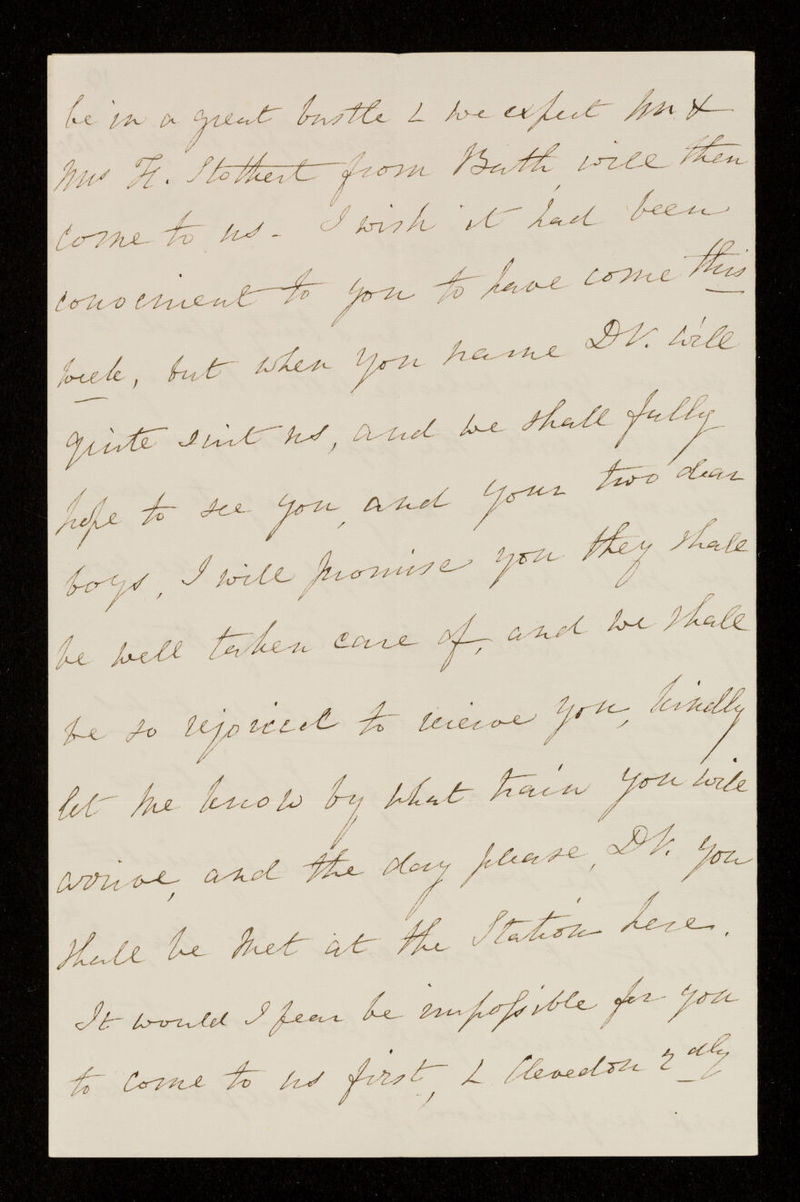 be in a great bustle & we expect Mr &
Mrs H. Stothert from Bath, will then
come to us - I wish it had been
convenient to you to have come this
week, but when you name DV. will
quite suit us, and we shall fully
hope to see you, and your two dear
boys, I will promise you they shall
be well taken care of, and we shall
be so rejoiced to receive you, kindly
let me know by what train you will
arrive, and the day please, DV. you
shall be met at the Station here.
It would I fear be impossible for you
to come to us first, & Clevedon 2dly